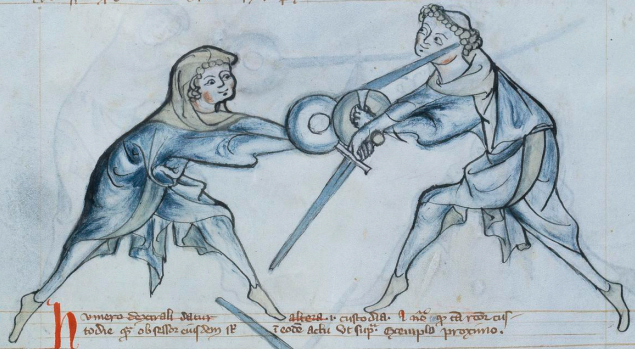 humero dexterali datur altera custodia. q̄ tā cus
todie q̄ obsessor eiusdem st̄ ī eodē actu Vt supᵃ exemplo proximo.